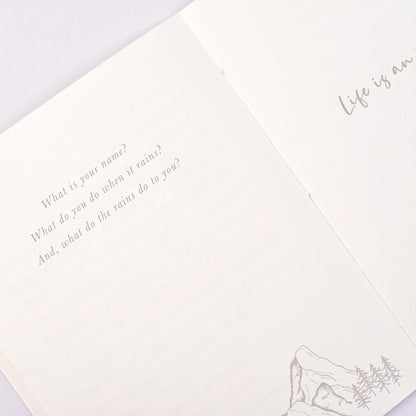 What is your name?
What do you do when it rains?
And, what do the rains do to you?
Life is an